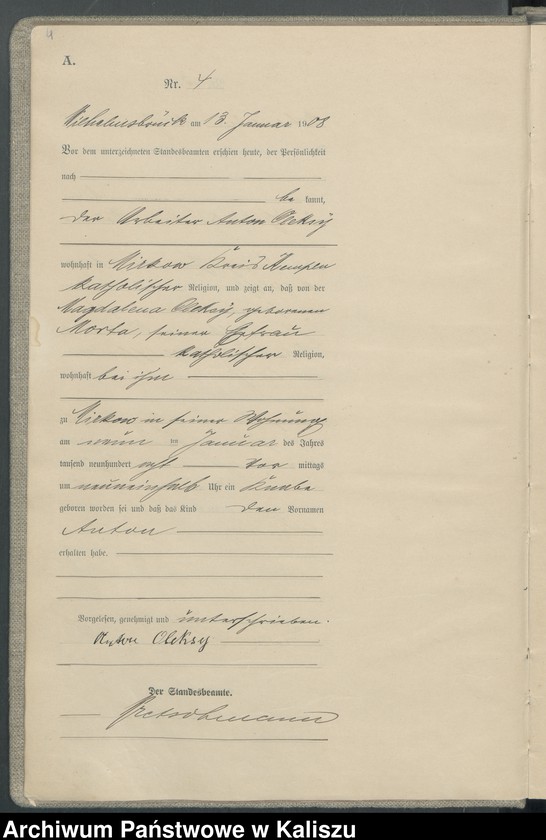 4
A.
Nr. 4
Wilhelmsbrück am 13. Januar 1908
Vor dem unterzeichneten Standesbeamten erschien heute, der Persönlichkeit
nach
be kannt,
der Arbeiter Anton Oleksy
wohnhaft in Mirkow Kreis Kempen
katholischer Religion, und zeigt an, daß von der
Magdalena Oleksy, geborenen
Morta, seiner Ehefrau
katholischer Religion,
wohnhaft bei ihm
zu Mirkow in seiner Wohnung
am neun ten Januar des Jahres
tausend neunhundert acht vor mittags
um neuneinhalb Uhr ein Knabe
geboren worden sei und daß das Kind den Vornamen
Anton
erhalten habe.
Vorgelesen, genehmigt und unterschrieben.
Anton Oleksy
Der Standesbeamte.
Archiwum Państwowe w Kaliszu